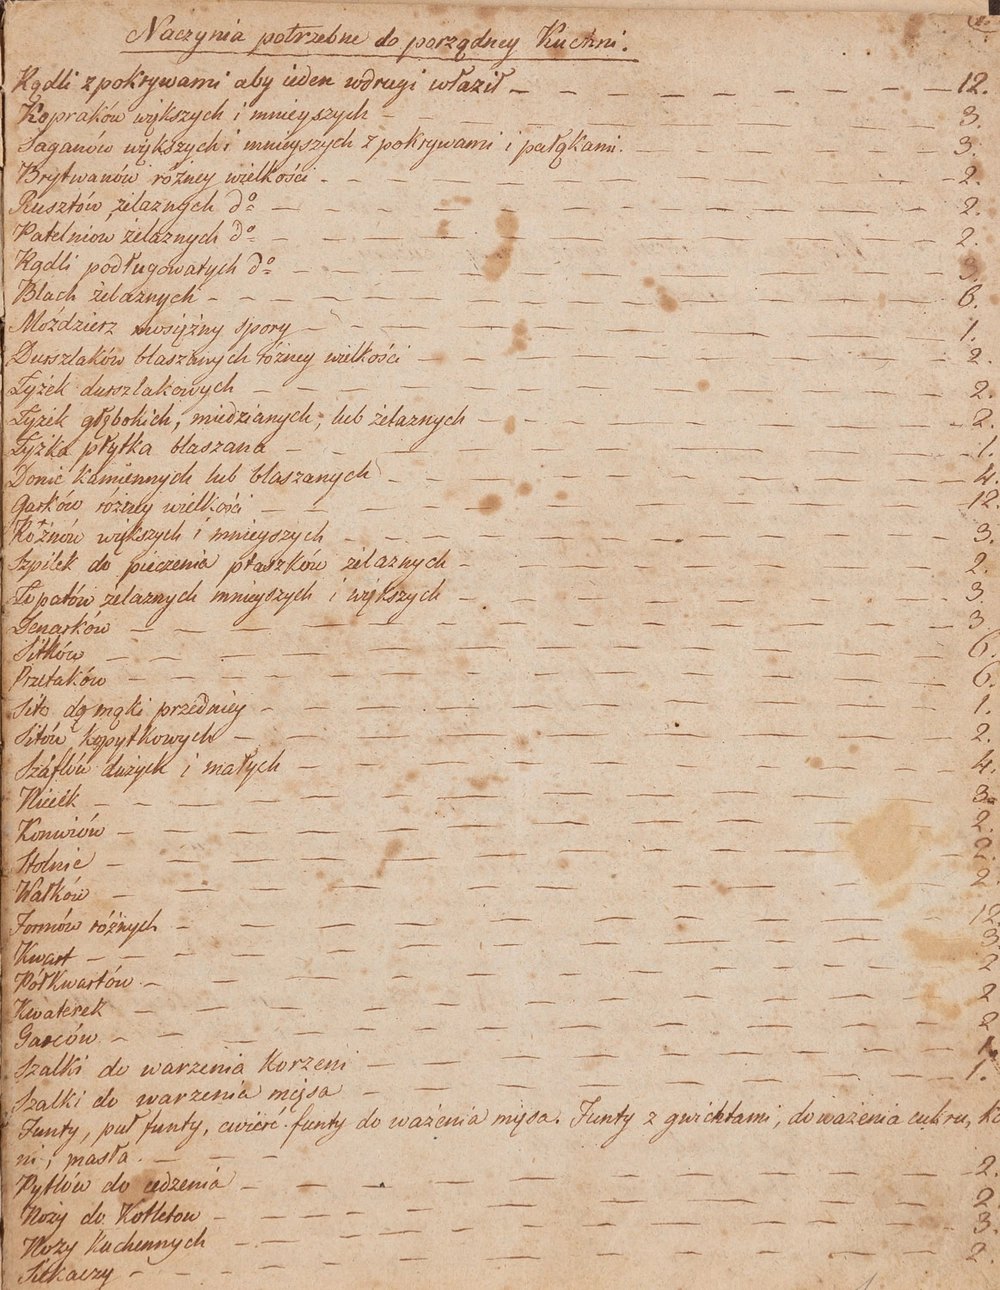 Naczynia potrzebne do porządney Kuchni.
Rądli z pokrywami aby ieden w drugi właził — 12.
Kopraków większych i mnieyszych — 3.
Saganów większych i mnieyszych z pokrywami i pałąkami. — 3.
Brytwanów różney wielkości — 2.
Rusztów żelaznych do — 2.
Patelniow żelaznych do — 2.
Rądli podługowatych do — 3.
Blach żelaznych — 6.
Moździerz mosiężny spory — 1.
Durszlaków blaszanych różney wielkości — 2.
Łyżek durszlakowych — 2.
Łyżek głębokich, miedzianych, lub żelaznych — 2.
Łyżka płytka blaszana — 1.
Donic kamiennych lub blaszanych — 4.
Garków różney wielkości — 12.
Rożnów większych i mnieyszych — 3.
Szpilek do pieczenia ptaszków żelaznych — 2.
Łopatów żelaznych mnieyszych i większych — 3
Denarków — 3
Sitków — 6.
Przetaków — 6.
Sito do mąki przedniey — 1.
Sitów kopytkowych — 2.
Szaflów dużych i małych — 4.
Niecek — 3.
Konwiów — 2.
Stolnic — 2.
Wałków — 2.
Formów różnych — 12
Kwart — 3
Półkwartów — 2
Kwaterek — 2
Garców — 2
Szalki do warzenia Korzeni — 1.
Szalki do warzenia mięsa — 1.
Funty, puł funty, cwierć funty do ważenia mięsa. Funty z gwichtami, do ważenia cukru,
ni, masła.
Pytlów do cedzenia — 2.
Noży do Kotletow — 2.
Noży Kuchennych — 3
Siekaczy — 2.